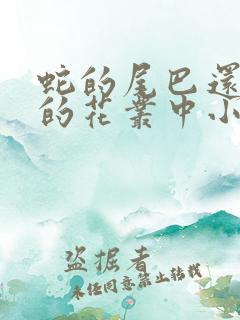 蛇的尾巴還
的花叢中小
盜掘者
未任同意禁止轉載